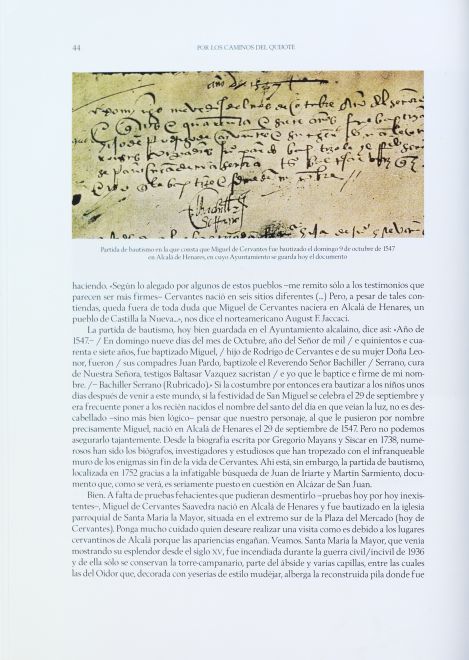 44
POR LOS CAMINOS DEL QUIJOTE
Partida de bautismo en la que consta que Miguel de Cervantes fue bautizado el domingo 9 de octubre de 1547
en Alcalá de Henares, en cuyo Ayuntamiento se guarda hoy el documento
haciendo. «Según lo alegado por algunos de estos pueblos –me remito sólo a los testimonios que
parecen ser más firmes– Cervantes nació en seis sitios diferentes (...) Pero, a pesar de tales con-
tiendas, queda fuera de toda duda que Miguel de Cervantes naciera en Alcalá de Henares, un
pueblo de Castilla la Nueva...», nos dice el norteamericano August F. Jaccaci.
La partida de bautismo, hoy bien guardada en el Ayuntamiento alcalaíno, dice así: «Año de
1547.– / En domingo nueve días del mes de Octubre, año del Señor de mil / e quinientos e cua-
renta e siete años, fue baptizado Miguel, / hijo de Rodrigo de Cervantes e de su mujer Doña Leo-
nor, fueron / sus compadres Juan Pardo, baptizole el Reverendo Señor Bachiller / Serrano, cura
de Nuestra Señora, testigos Baltasar Vazquez sacristan / e yo que le baptice e firme de mi nom-
bre. /– Bachiller Serrano (Rubricado).» Si la costumbre por entonces era bautizar a los niños unos
días después de venir a este mundo, si la festividad de San Miguel se celebra el 29 de septiembre y
era frecuente poner a los recién nacidos el nombre del santo del día en que veían la luz, no es des-
cabellado –sino más bien lógico– pensar que nuestro personaje, al que le pusieron por nombre
precisamente Miguel, nació en Alcalá de Henares el 29 de septiembre de 1547. Pero no podemos
asegurarlo tajantemente. Desde la biografía escrita por Gregorio Mayans y Siscar en 1738, nume-
rosos han sido los biógrafos, investigadores y estudiosos que han tropezado con el infranqueable
muro de los enigmas sin fin de la vida de Cervantes. Ahí está, sin embargo, la partida de bautismo,
localizada en 1752 gracias a la infatigable búsqueda de Juan de Iriarte y Martín Sarmiento, docu-
mento que, como se verá, es seriamente puesto en cuestión en Alcázar de San Juan.
Bien. A falta de pruebas fehacientes que pudieran desmentirlo –pruebas hoy por hoy inexis-
tentes–, Miguel de Cervantes Saavedra nació en Alcalá de Henares y fue bautizado en la iglesia
parroquial de Santa María la Mayor, situada en el extremo sur de la Plaza del Mercado (hoy de
Cervantes). Ponga mucho cuidado quien deseare realizar una visita como es debido a los lugares
cervantinos de Alcalá porque las apariencias engañan. Veamos. Santa María la Mayor, que venía
mostrando su esplendor desde el siglo XV, fue incendiada durante la guerra civil/incivil de 1936
y de ella sólo se conservan la torre-campanario, parte del ábside y varias capillas, entre las cuales
las del Oidor que, decorada con yeserías de estilo mudéjar, alberga la reconstruida pila donde fue